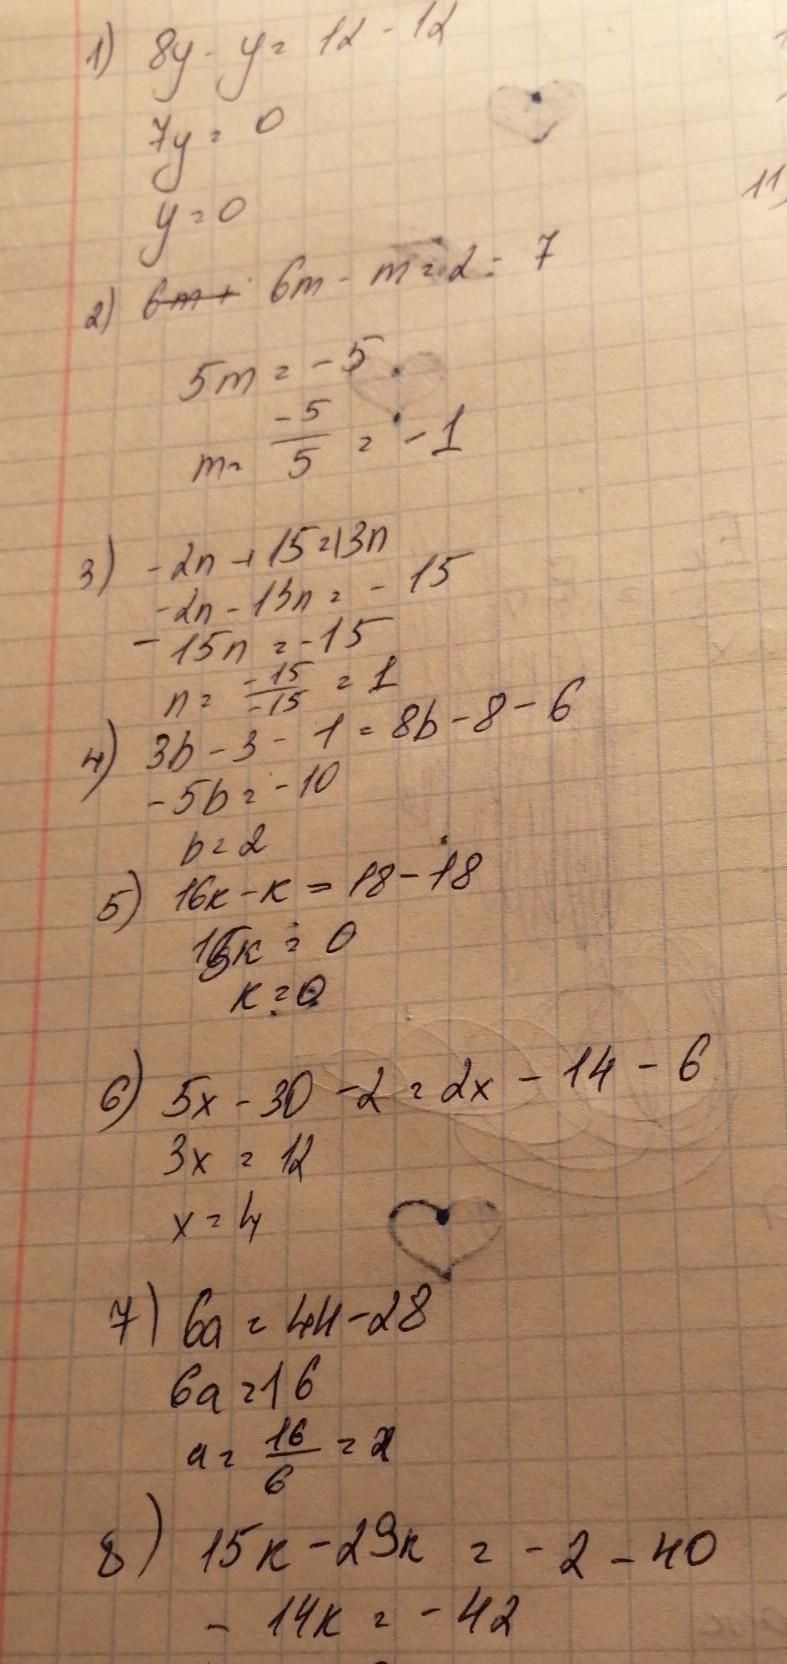 1) 8y - y = 12 - 12
7y = 0
y = 0
2) 6m + 6m - m = 2 - 7
5m = -5
m = -5/5 = -1
3) -2n + 15 = 13n
-2n - 13n = -15
-15n = -15
n = -15/-15 = 1
4) 3b - 3 - 1 = 8b - 8 - 6
-5b = -10
b = 2
5) 16k - k = 18 - 18
15k = 0
k = 0
6) 5x - 30 - 2 = 2x - 14 - 6
3x = 12
x = 4
7) 6a = 44 - 28
6a = 16
a = 16/6 =
8) 15k - 29k = -2 - 40
-14k = -42
11)